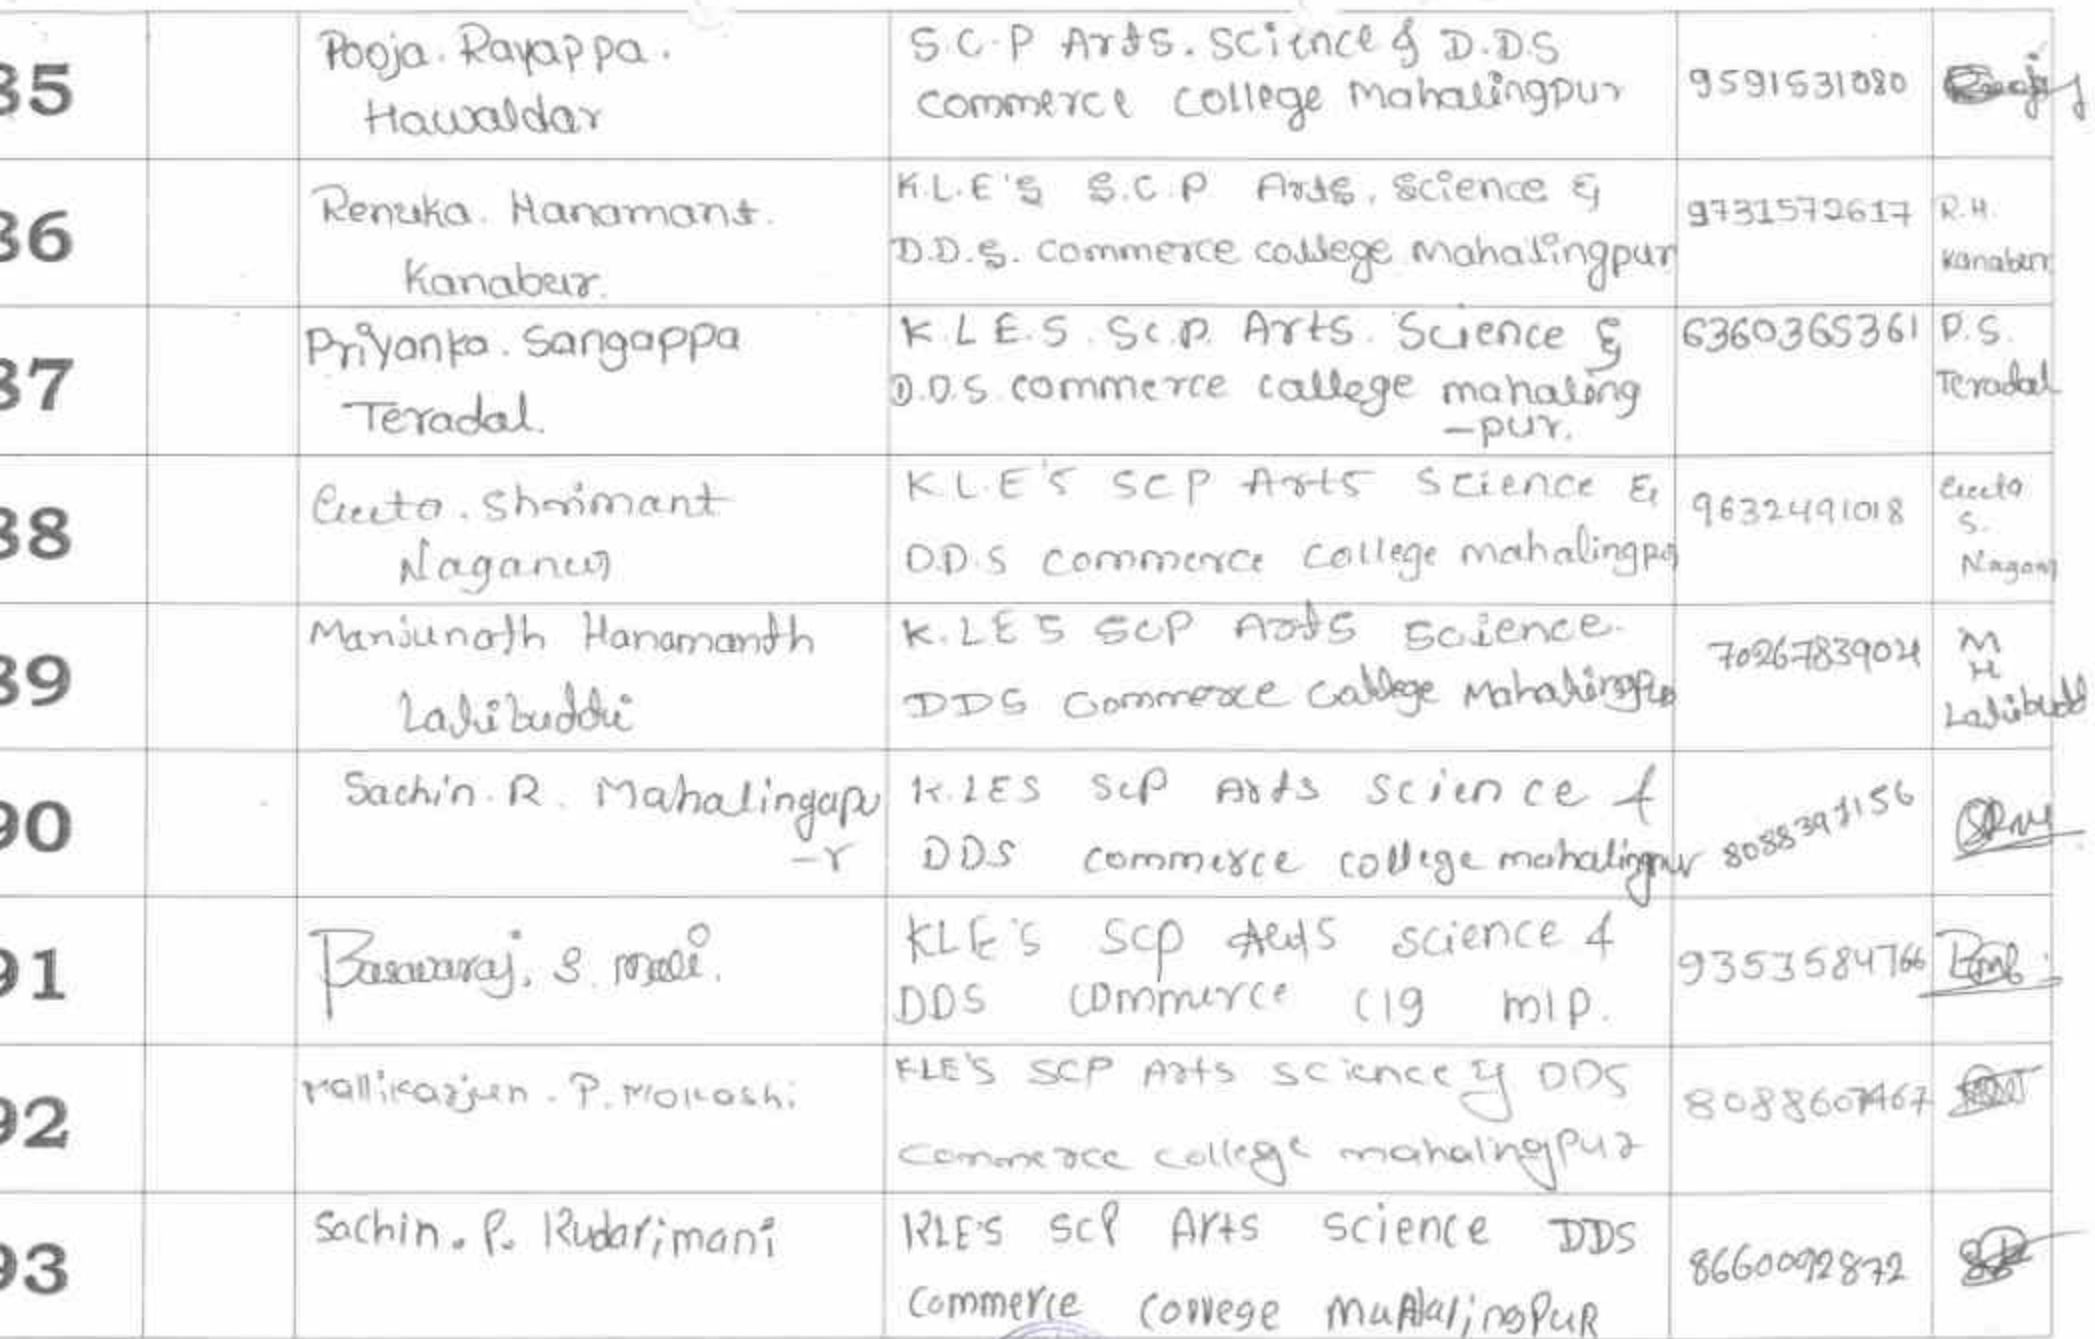 35
Pooja. Rayappa.
Hawaldar
S.C.P Arts. Science & D.DS
commerce college Mahalingpur
9591531080
36
Renuka. Hanamant.
Kanaber.
K.L.E'S S.C.P Arts, Science &
D.D.S. commerce college Mahalingpur
9731572617
R.H.
Kanaber
37
Priyanka. Sangappa
Teradal.
K.L.E.S. S.C.P. Arts. Science &
D.D.S. commerce callege mahaling
-pur.
6360365361
P.S.
Teradal
38
Shrimant
Naganur
K.L.E'S SCP Arts Science &
D.D.S commerce college mahalingpur
9632491018
S.
39
Manjunath Hanamanth
K.LE'S SCP Arts Science.
DDS Commerce College Mahalingpur
7026783902
M
H
90
Sachin. R. Mahalingapu
-r
K.LES SCP Arts Science &
DDS commerce college mahalingpur
8088397156
91
Basavaraj. S. Mali.
KLE's SCP Arts science &
DDS Commerce Clg mlp.
9353584766
92
Mallikarjun. P. Mokashi
KLE'S SCP Arts science & DDS
commerce college mahalingpur
93
Sachin. P. Kudarimani
KLE'S SCP Arts Science DDS
commerce college
8660092872